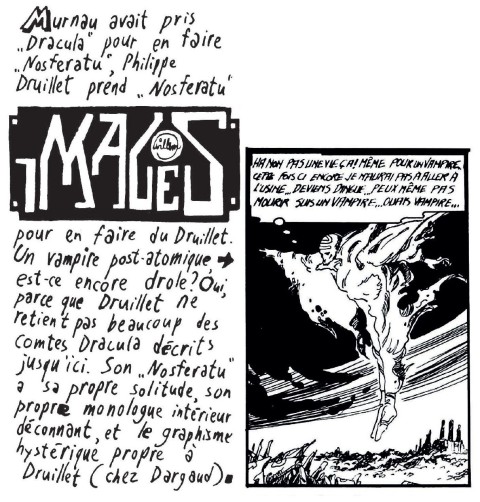 Murnau avait pris
„Dracula" pour en faire
„Nosferatu", Philippe
Druillet prend „Nosferatu"
IMAGES
Willem
pour en faire du Druillet.
Un vampire post-atomique,
est-ce encore drole? Oui,
parce que Druillet ne
retient pas beaucoup des
comtes Dracula décrits
jusqu'ici. Son „Nosferatu"
a sa propre solitude, son
propre monologue intérieur
déconnant, et le graphisme
hystérique propre à
Druillet (chez Dargaud).
HA NON PAS UNE VIE ÇA! MÊME POUR UN VAMPIRE,
CETTE FOIS CI ENCORE JE N'AURAI PAS A ALLER A
L'USINE... DEVIENS DINGUE... PEUX MÊME PAS
MOURIR SUIS UN VAMPIRE... OUAIS VAMPIRE...